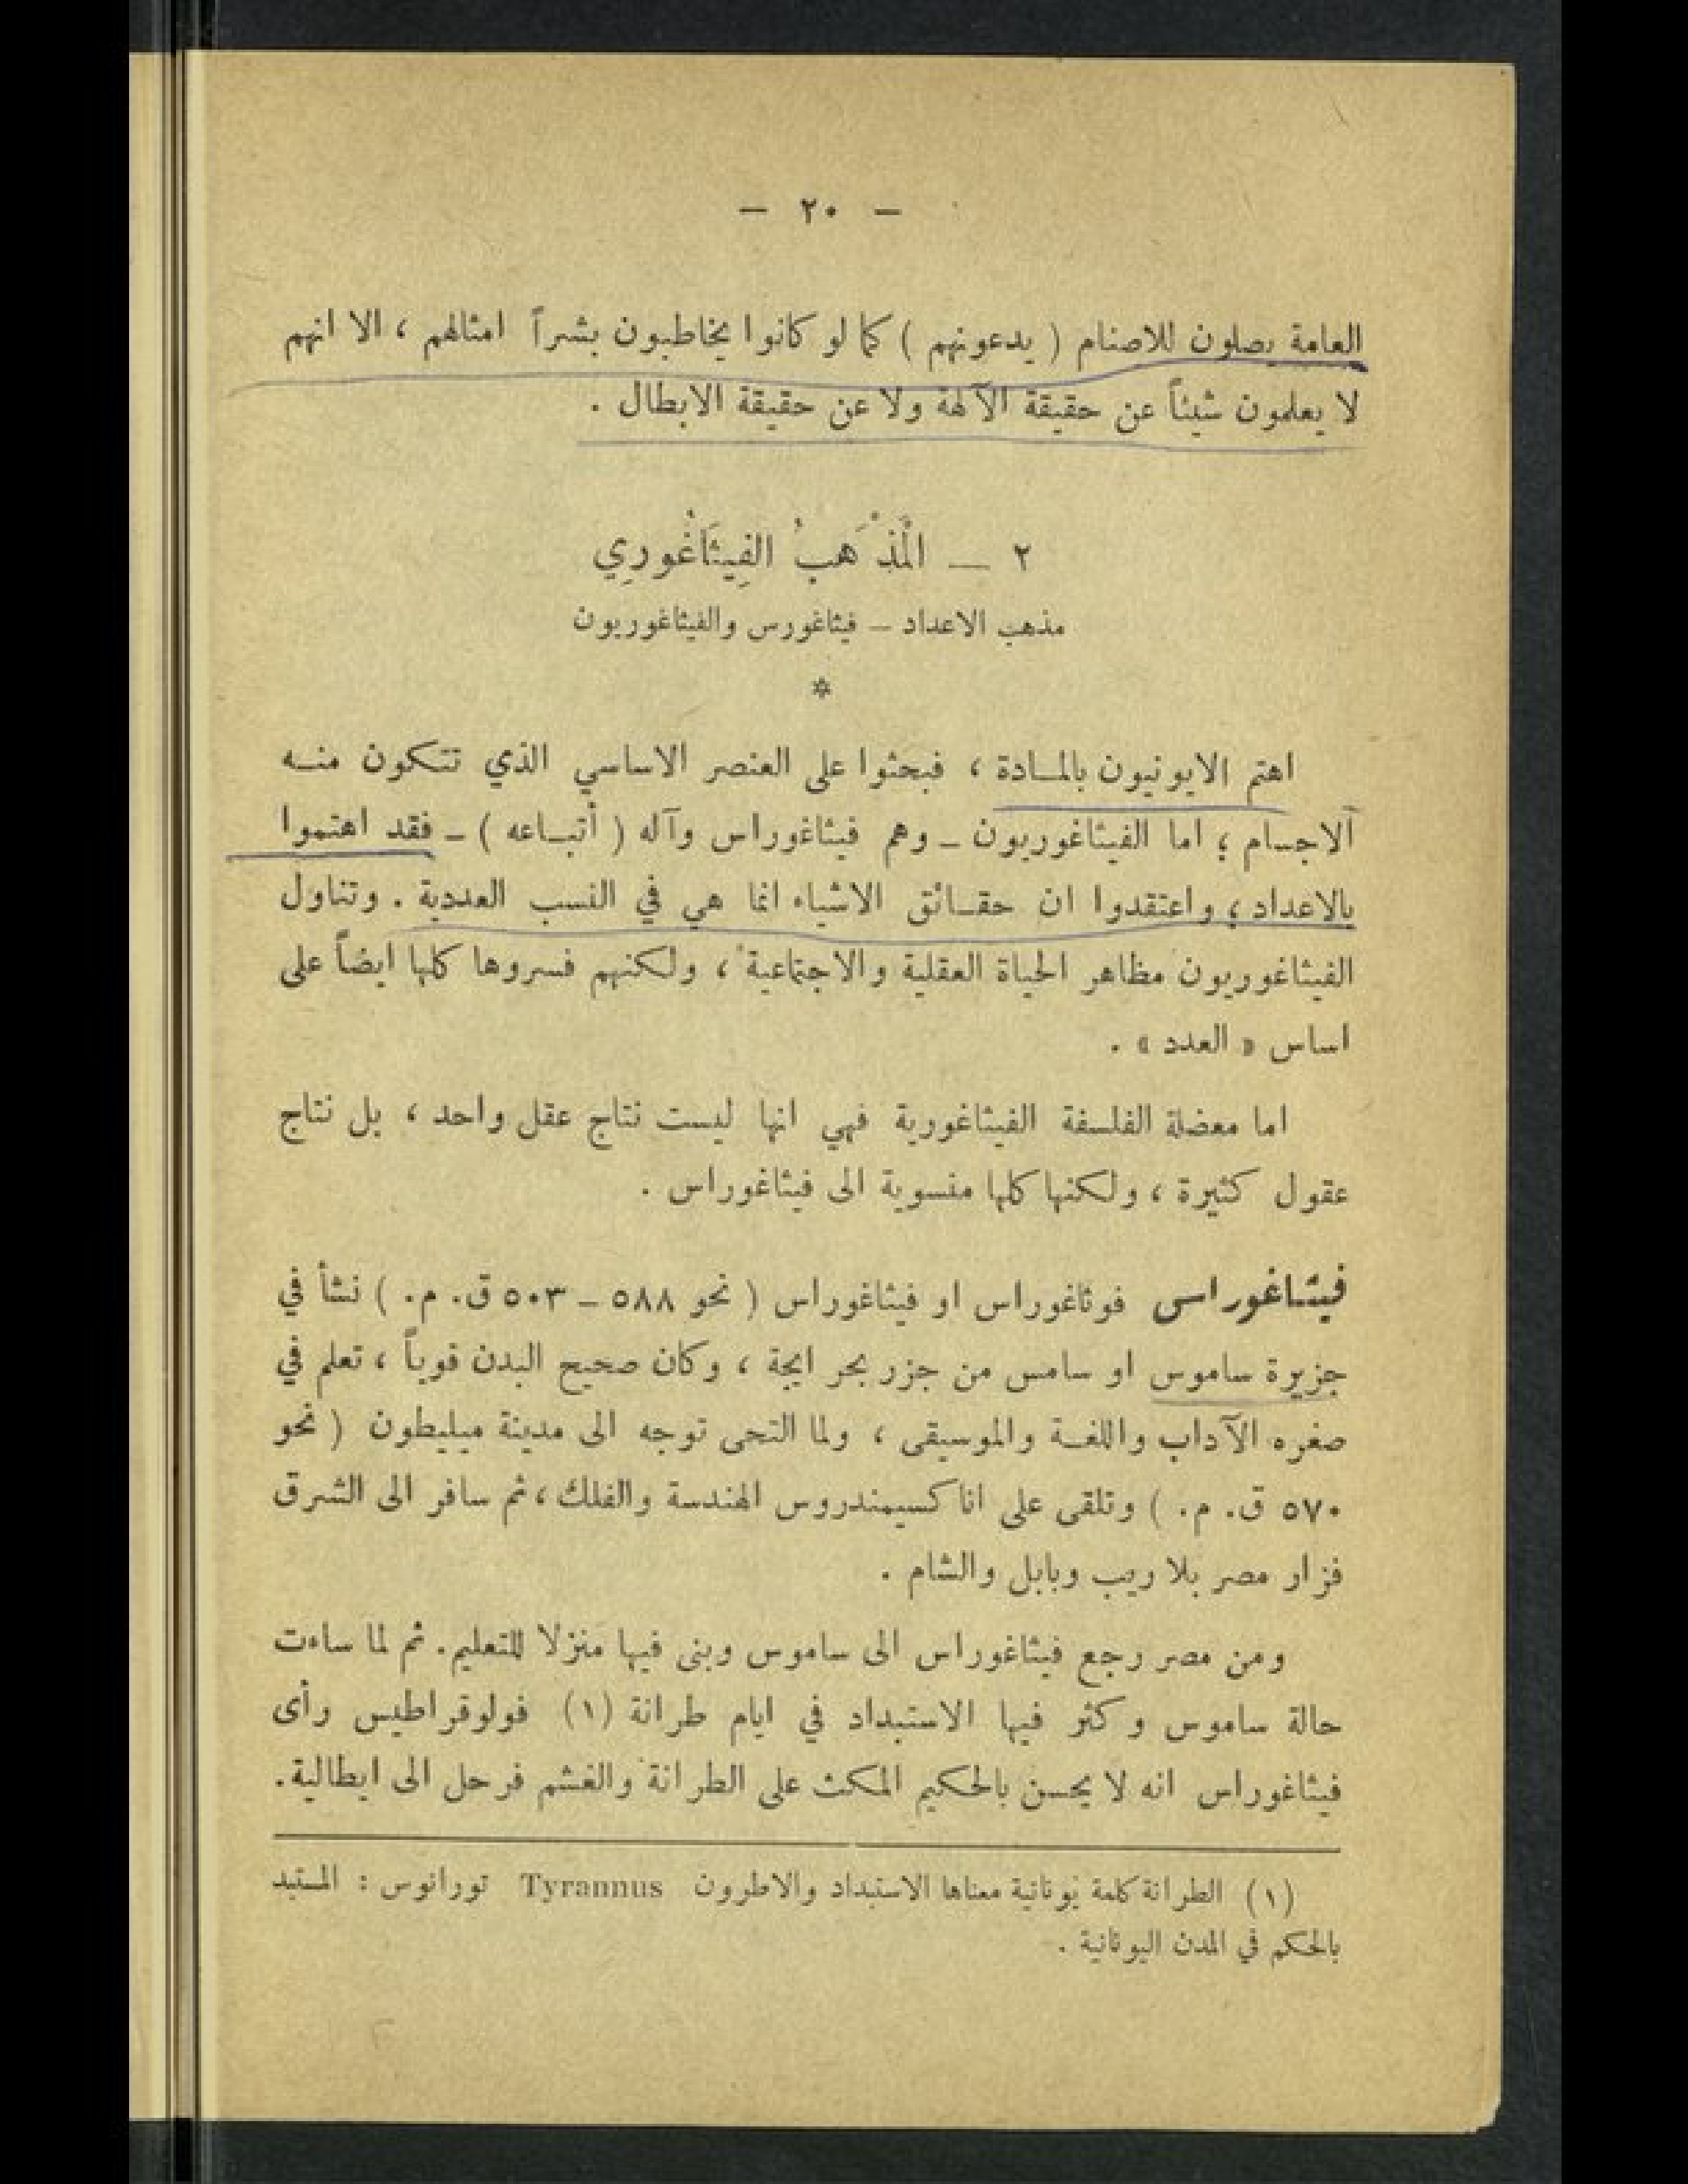 — ٢٠ —
العامة يصلون للاصنام ( يدعونهم ) كما لو كانوا يخاطبون بشراً امثالهم ، الا انهم
لا يعلمون شيئاً عن حقيقة الآلهة ولا عن حقيقة الابطال .
٢ — الْمَذْهَبُ الفِيثَاغُورِي
مذهب الاعداد – فيثاغورس والفيثاغوريون
*
اهتم الايونيون بالمـادة ، فبحثوا على العنصر الاساسي الذي تتكون منـه
الاجسام ؛ اما الفيثاغوريون – وهم فيثاغوراس وآله ( أتبـاعه ) – فقد اهتموا
بالاعداد ؛ واعتقدوا ان حقـائق الاشياء انما هي في النسب العددية . وتناول
الفيثاغوريون مظاهر الحياة العقلية والاجتماعية ، ولكنهم فسروها كلها ايضاً على
اساس « العدد » .
اما معضلة الفلسفة الفيثاغورية فهي انها ليست نتاج عقل واحد ، بل نتاج
عقول كثيرة ، ولكنها كلها منسوبة الى فيثاغوراس .
فيثـاغوراس فوثاغوراس او فيثاغوراس ( نحو ٥٨٨ – ٥٠٣ ق. م. ) نشأ في
جزيرة ساموس او سامس من جزر بحر ايجة ، وكان صحيح البدن قوياً ، تعلم في
صغره الآداب واللغـة والموسيقى ، ولما التحى توجه الى مدينة ميليطون ( نحو
٥٧٠ ق. م. ) وتلقى على اناكسيمندروس الهندسة والفلك ، ثم سافر الى الشرق
فزار مصر بلا ريب وبابل والشام .
ومن مصر رجع فيثاغوراس الى ساموس وبنى فيها منزلا للتعليم. ثم لما ساءت
حالة ساموس وكثر فيها الاستبداد في ايام طرانة (١) فولوقراطيس رأى
فيثاغوراس انه لا يحسن بالحكيم المكث على الطرانة والغشم فرحل الى ايطالية.
(١) الطرانة كلمة يونانية معناها الاستبداد والاطرون Tyrannus تورانوس : المستبد
بالحكم في المدن اليونانية .